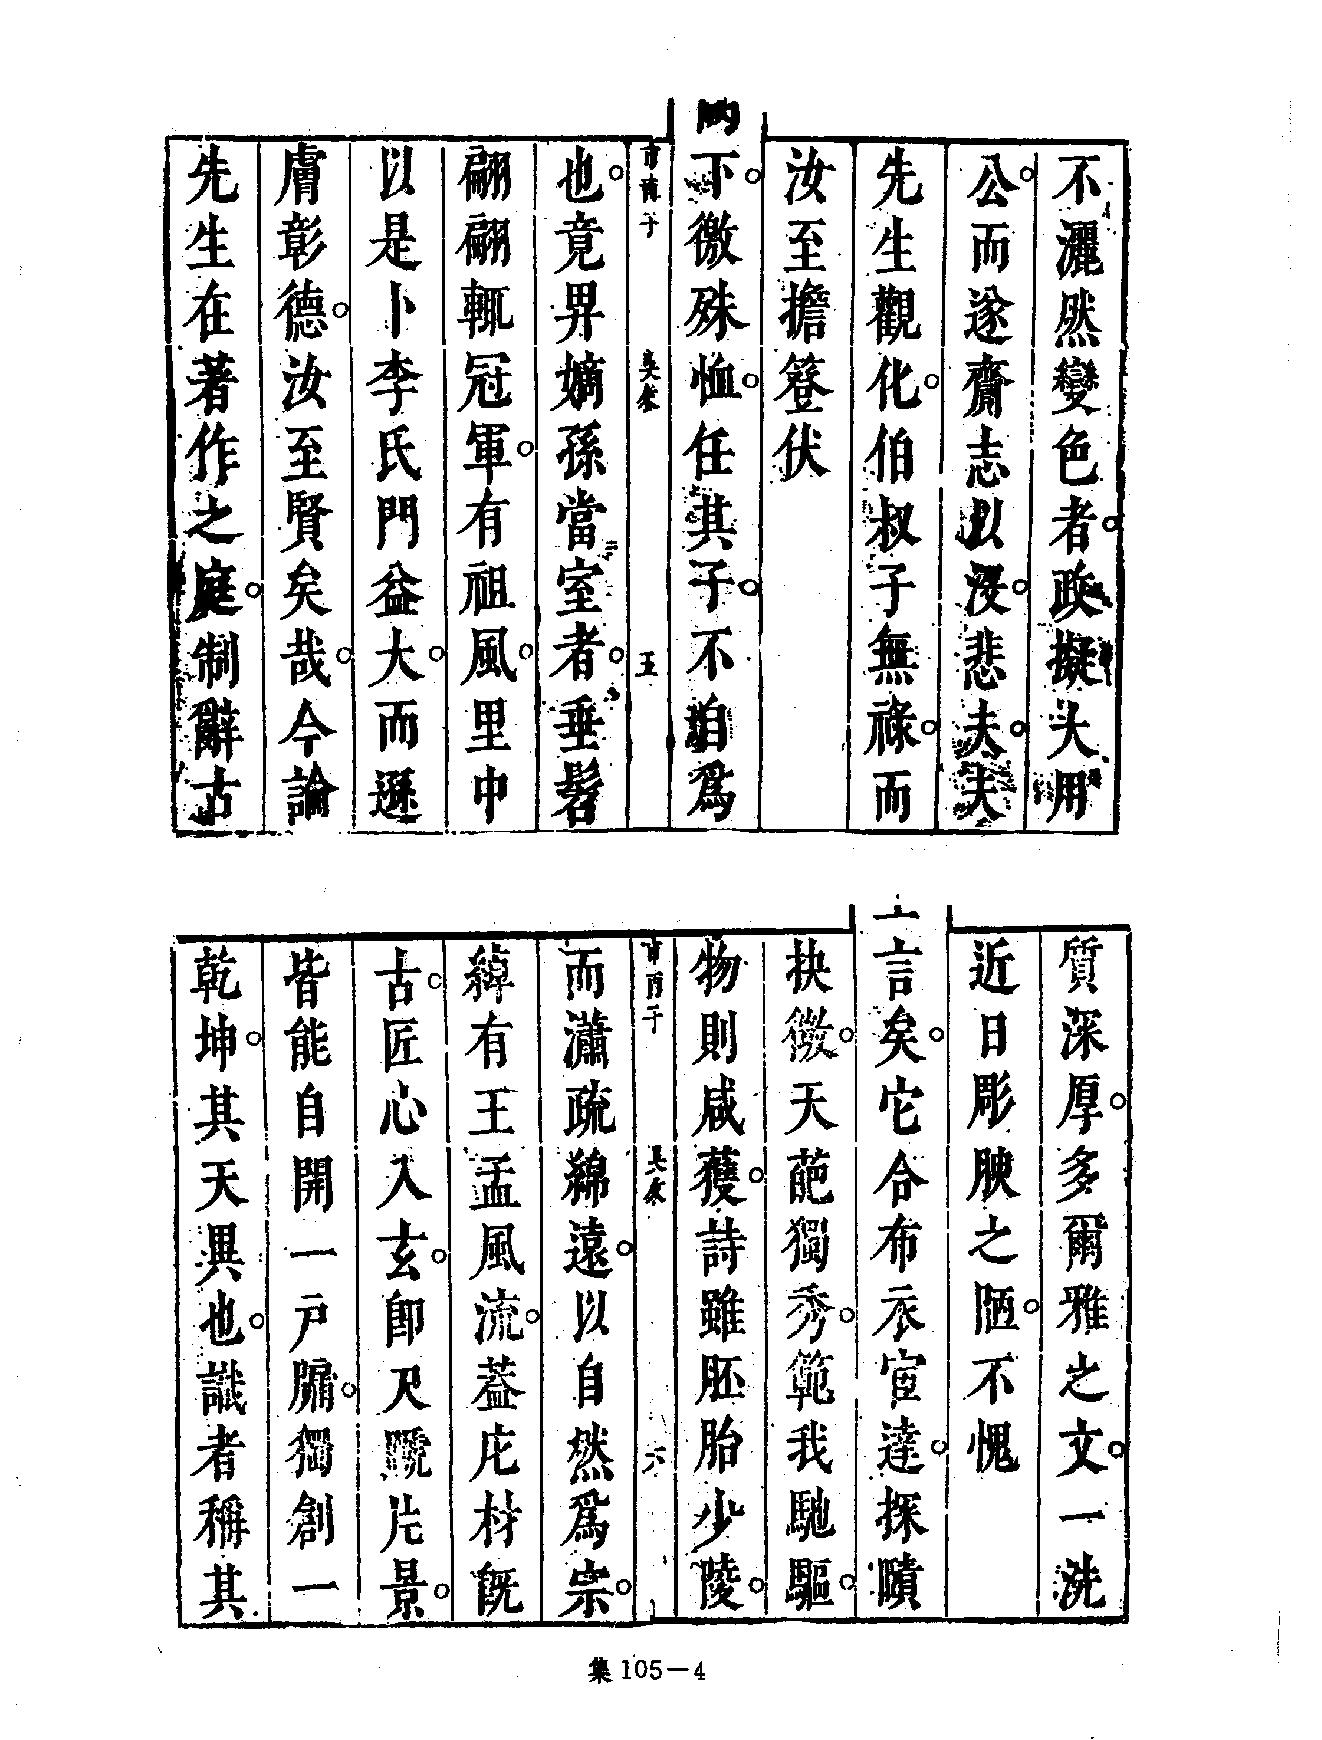 不灑然變色者。政擬大用
公。而遂齎志以沒。悲夫。夫
先生觀化。伯叔子無祿。而
汝至擔簦伏
闕下。徼殊恤。任其子。不自爲
市南子 吳叅 五
也。竟畀嫡孫當室者。垂髫
翩翩輒冠軍。有祖風。里中
以是卜李氏門益大。而遜
膚彰德。汝至賢矣哉。今論
先生在著作之庭。制辭古
質深厚。多爾雅之文。一洗
近日彫腴之陋。不愧
六言矣。它合布衣宦達。探賾
抉微。天葩獨秀。範我馳驅。
物則咸獲。詩雖胚胎少陵。
市南子 吳叅 六
而瀟疏綿遠。以自然爲宗。
綽有王孟風流。葢庀材旣
古。匠心入玄。卽尺䚀片景。
皆能自開一戸牖。獨創一
乾坤。其天異也。識者稱其
集105－4